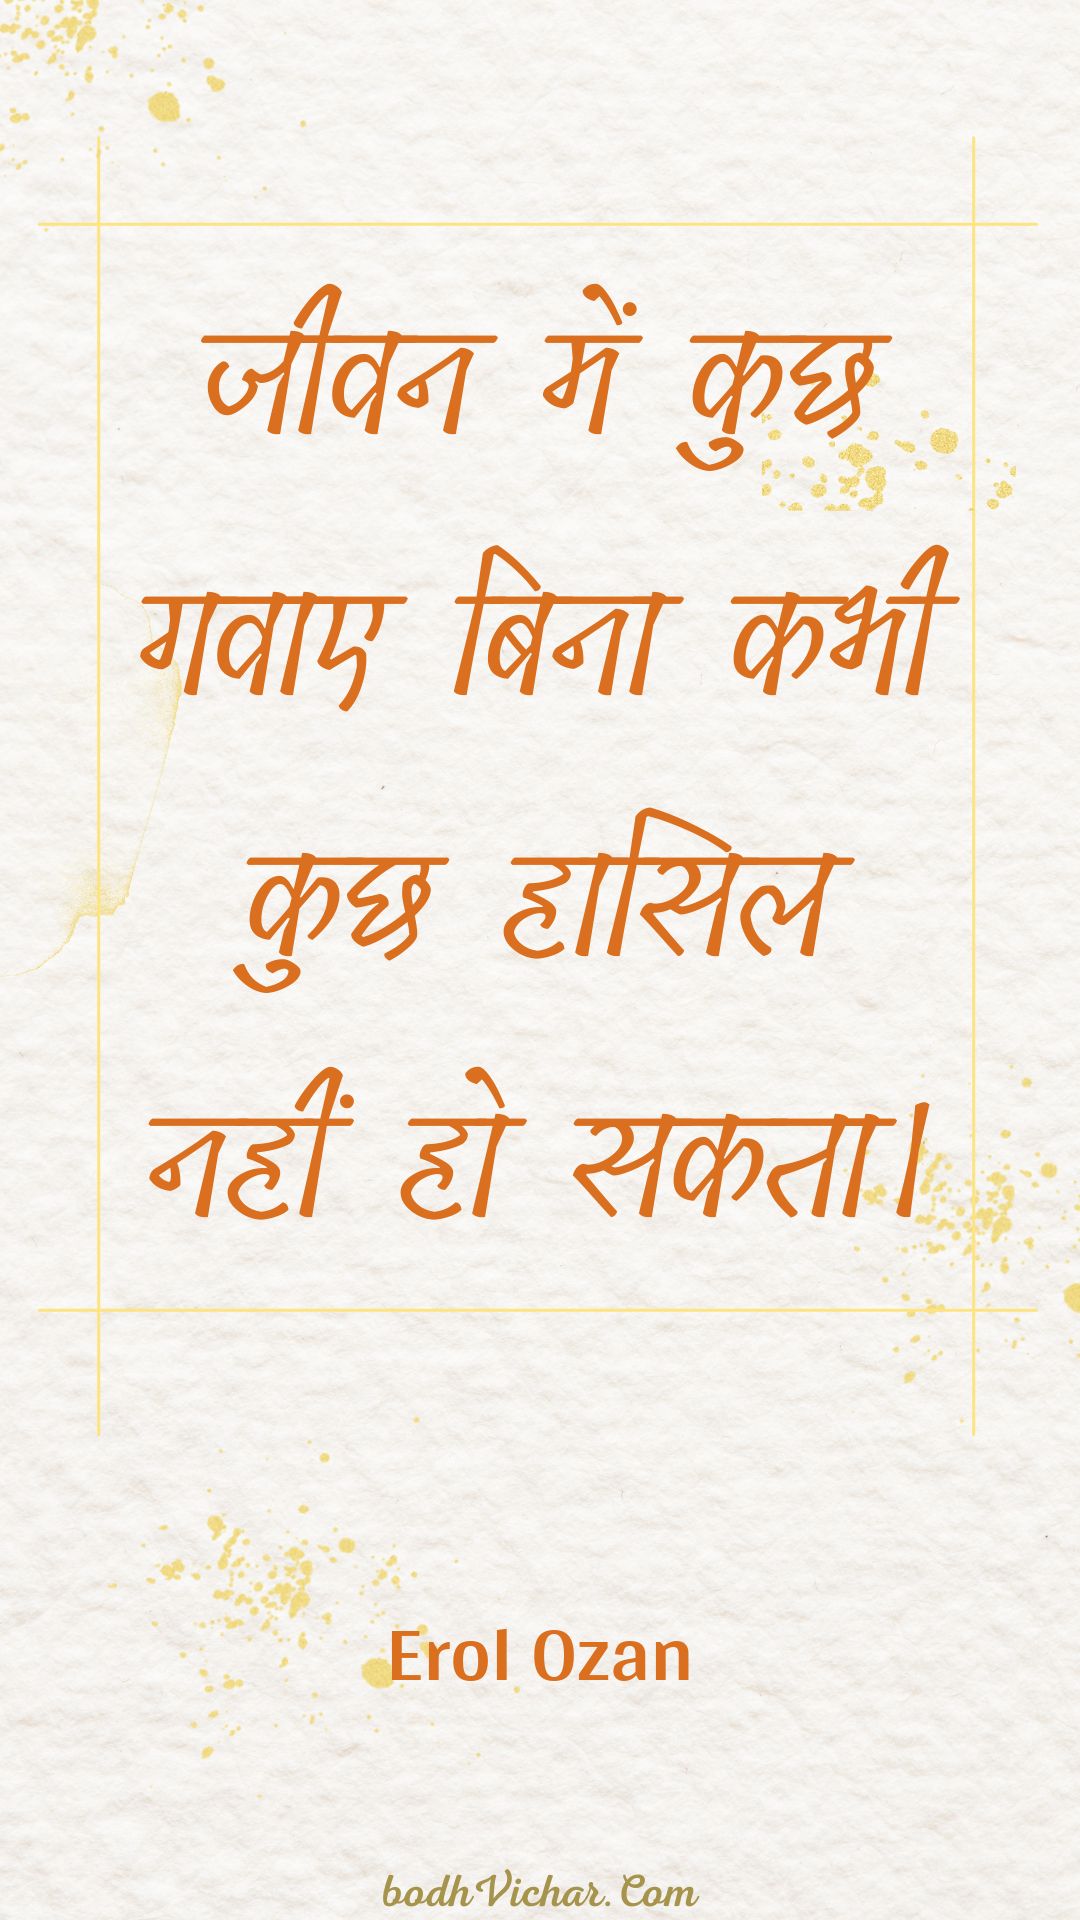 जीवन में कुछ
गवाए बिना कभी
कुछ हासिल
नहीं हो सकता।
Erol Ozan
bodhVichar.Com